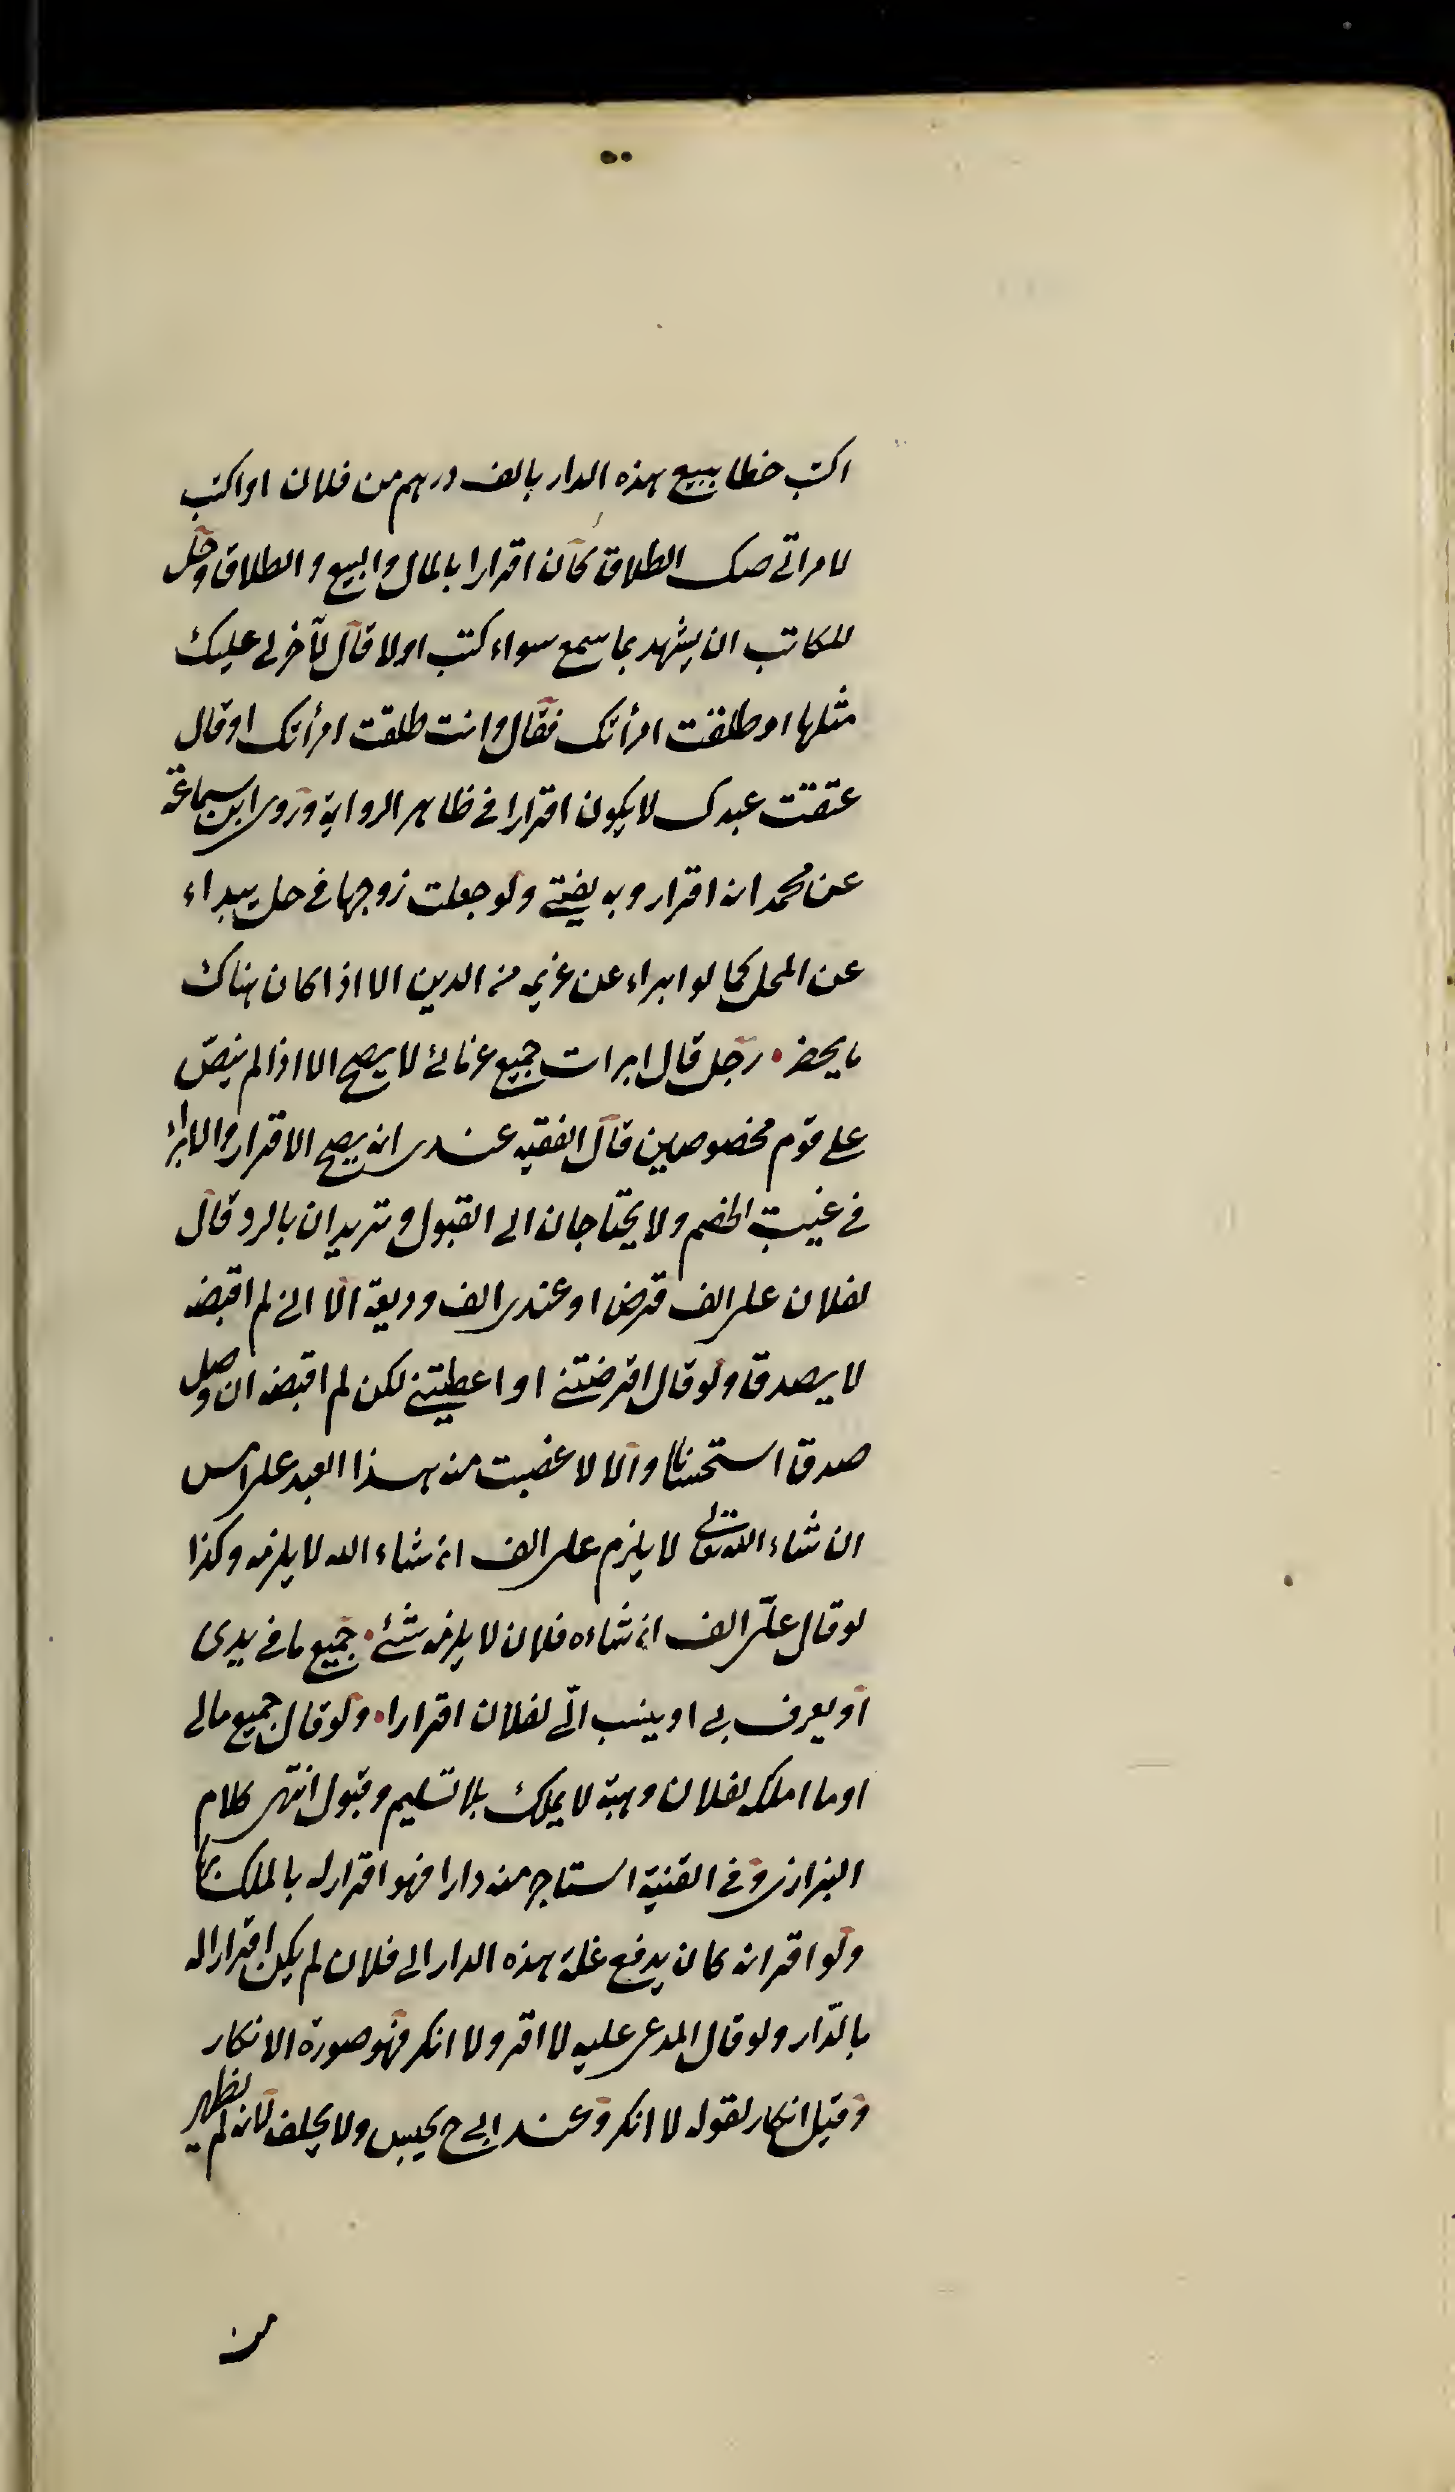 اكتب خطا ببيع هذه الدار بالف درهم من فلان او اكتب
لامراتي صك الطلاق كان اقرارا بالمال والبيع والطلاق وحل
للكاتب ان يشهد بما سمع سواء كتب اولا قال لآخر لي عليك
مثلها او طلقت امرأتك فقال وانت طلقت امرأتك او قال
عتقت عبدك لا يكون اقرارا في ظاهر الرواية وروى ابن سماعة
عن محمد انه اقرار وبه يفتى ولو جعلت زوجها في حل يبراء
عن المحل كما لو ابراء عن غريمه من الدين الا اذا كان هناك
ما يحضر رجل قال ابرات جميع غرمائي لا يصح الا اذا لم ينص
على قوم مخصوصين قال الفقيه عندى انه يصح الاقرار والابراء
في غيبت الخصم ولا يحتاجان الى القبول وتريدان بالرد قال
لفلان على الف قرض او عندى الف وديعة الا انى لم اقبضه
لا يصدق ولو قال اقرضتنى او اعطيتنى لكن لم اقبضه ان وصل
صدق استحسانا والا لا غصبت منه هذا العبد على امس
ان شاء الله تعالى لا يلزم على الف ان شاء الله لا يلزمه وكذا
لو قال علىّ الف ان شاءه فلان لا يلزمه شئ جميع ما في يدى
او يعرف بي او ينسب الىّ لفلان اقرارا ولو قال جميع مالى
او ما املكه لفلان وهبة لا يملك بلا تسليم وقبول انتهى كلام
البزازى وفي القنية استاجر منه دارا فهو اقرار له بالملك
ولو اقر انه كان يدفع غلة هذه الدار الى فلان لم يكن اقرارا له
بالدّار ولو قال المدعى عليه لا اقر ولا انكر فهو صورة الانكار
وقيل انكار لقوله لا انكر وعند ابي ح يحبس ولا يحلف لانه لم يظهر
من